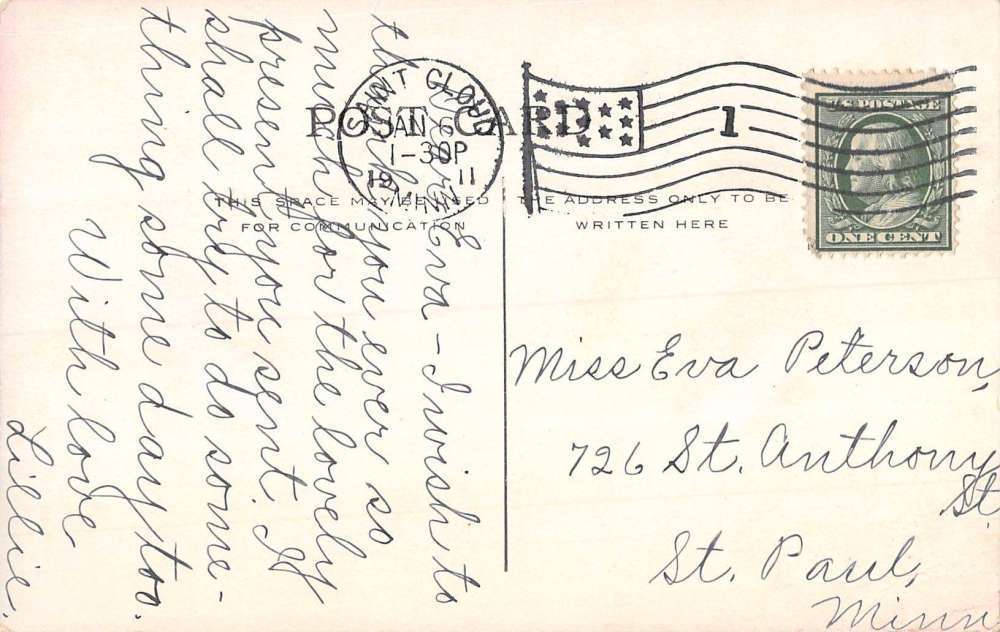 POST CARD
SAINT CLOUD
JAN 6
1-30P
19 11
MINN.
1
U.S. POSTAGE
ONE CENT
THIS SPACE MAY BE USED
FOR COMMUNICATION
THE ADDRESS ONLY TO BE
WRITTEN HERE
Eva - I wish to
thank you ever so
much for the lovely
present you sent. I
shall try to do some-
thing some day too.
With love
Lillie.
Miss Eva Peterson,
726 St. Anthony
St.
St. Paul,
Minn